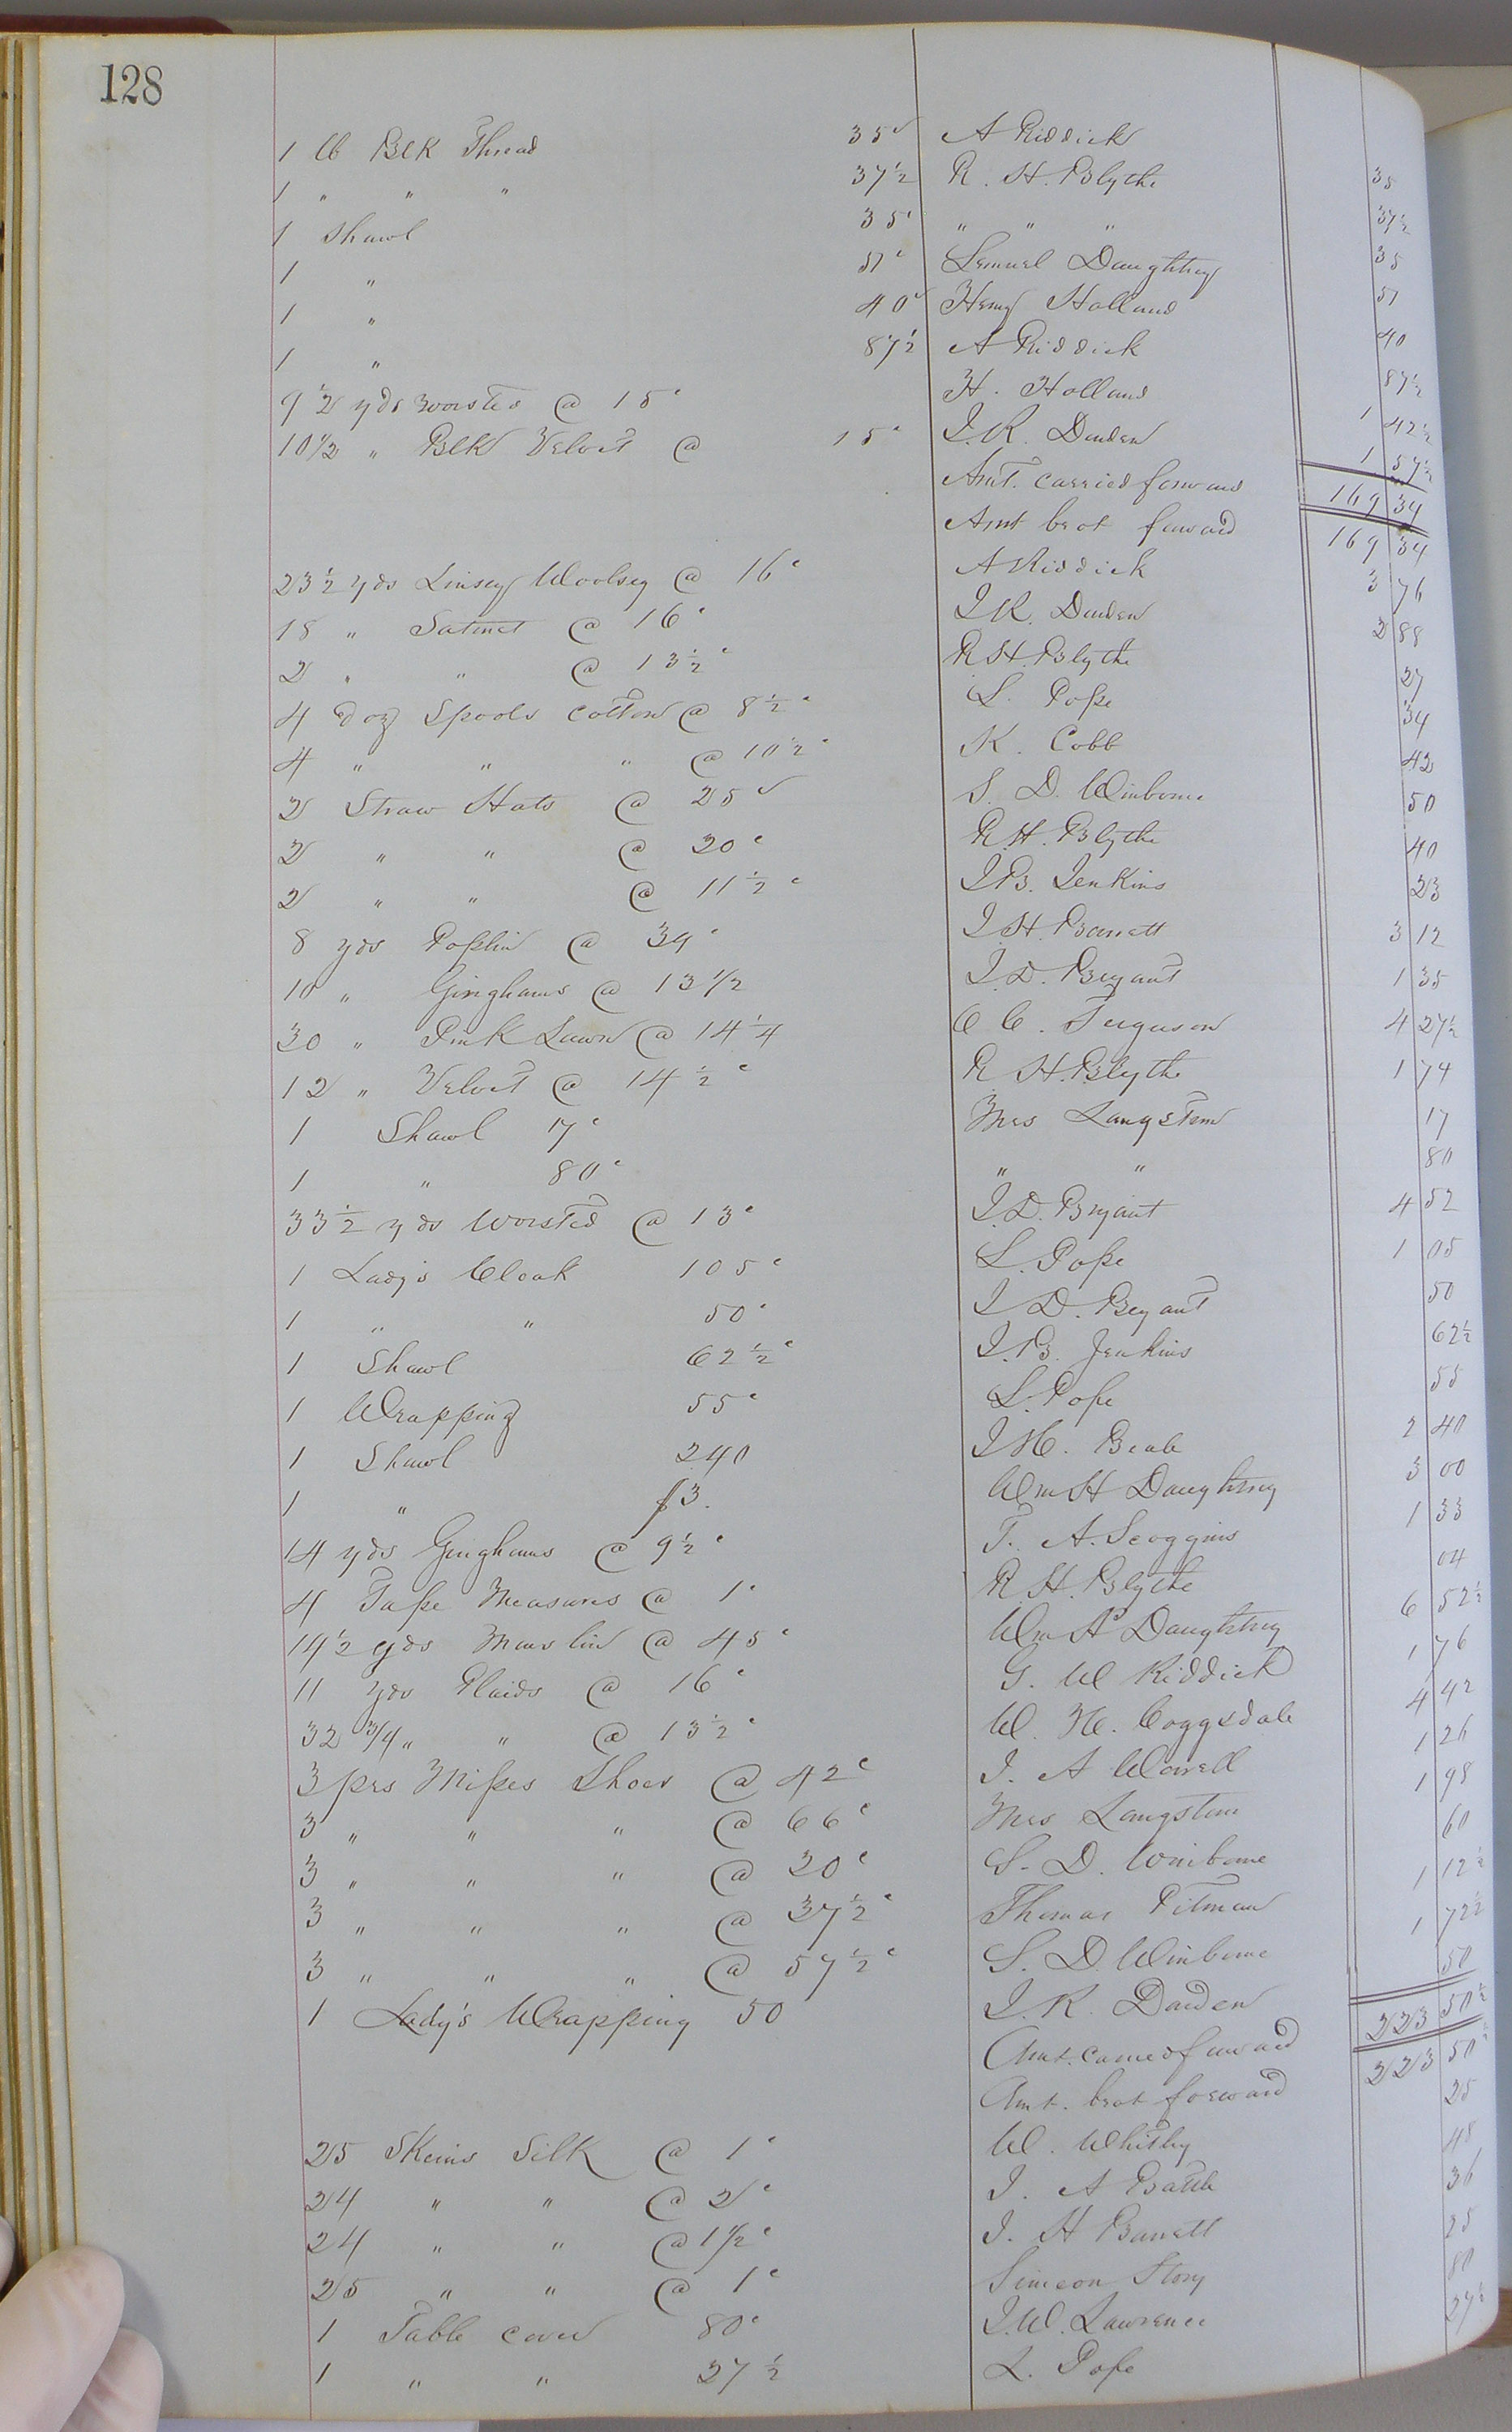 128
1 lb Blk Thread 35c A Riddick 35
1 " " " 37½ R. H. Blythe 37½
1 Shawl 35c " " " 35
1 " 51c Lemuel Daughtrey 51
1 " 40c Henry Holland 40
1 " 87½ A Riddick 87½
9½ yds worsted @ 15c H. Holland 1 42½
10½ " Blk Velvet @ 15c J. R. Darden 1 57½
Amt. carried forward 169 34
Amt brot forward 169 34
23½ yds Linsey Woolsey @ 16c A Riddick 3 76
18 " Satinet @ 16c J R. Darden 2 88
2 " " @ 13½c R H. Blythe 27
4 doz Spools Cotton @ 8½c L. Pope 34
4 " " " @ 10½c K. Cobb 42
2 Straw Hats @ 25c S. D. Winborne 50
2 " " @ 20c R. H. Blythe 40
2 " " @ 11½c J B. Jenkins 23
8 yds Poplin @ 39c J. H. Barrett 3 12
10 " Ginghams @ 13½ J. D. Bryant 1 35
30 " Pink Lawn @ 14¼ C C. Ferguson 4 27½
12 " Velvet @ 14½c R H. Blythe 1 74
1 Shawl 17c Mrs Langston 17
1 " 80c " " 80
33½ yds Worsted @ 13c J. D. Bryant 4 52
1 Lady's Cloak 105c L. Pope 1 05
1 " " 50c J D. Bryant 50
1 Shawl 62½c J. B. Jenkins 62½
1 Wrapping 55c L. Pope 55
1 Shawl 240 J H. Beale 2 40
1 " $3. Wm H Daughtrey 3 00
14 yds Ginghams @ 9½c T. A. Scoggins 1 33
4 Tape Measures @ 1c R. H. Blythe 04
14½ yds Muslin @ 45c Wm H Daughtrey 6 52½
11 yds Plaids @ 16c G. W Riddick 1 76
32¾ " " @ 13½c W. H. Coggsdale 4 42
3 prs Misses Shoes @ 42c J. A Worrell 1 26
3 " " " @ 66c Mrs Langston 1 98
3 " " " @ 20c S. D. Winborne 60
3 " " " @ 37½c Thomas Pitman 1 12½
3 " " " @ 57½c S. D Winborne 1 72½
1 Lady's Wrapping 50 J. R. Darden 50
Amt. carried forward 223 50½
Amt. brot forward 223 50½
25 Skeins Silk @ 1c W. Whitley 25
24 " " @ 2c J. A Battle 48
24 " " @ 1½c J. H Barrett 36
25 " " @ 1c Simeon Story 25
1 Table cover 80c J. W. Lawrence 80
1 " " 27½ L. Pope 27½